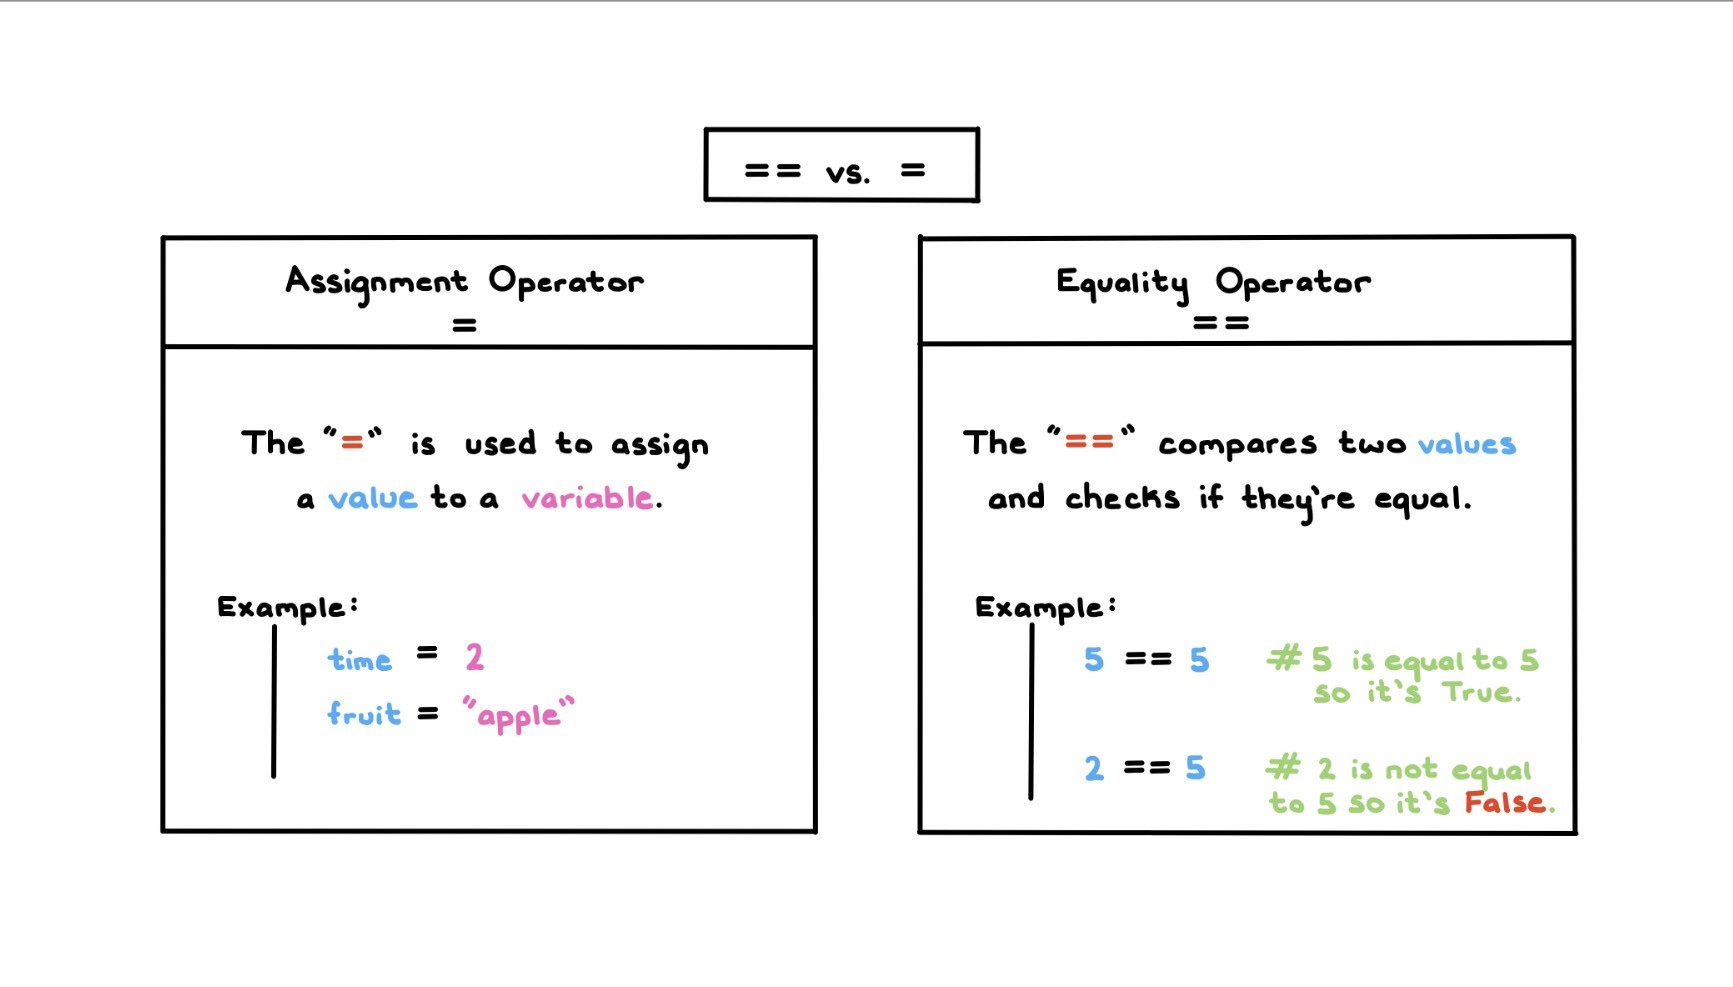 == vs. =
Assignment Operator
=
The "=" is used to assign
a value to a variable.
Example:
time = 2
fruit = "apple"
Equality Operator
==
The "==" compares two values
and checks if they're equal.
Example:
5 == 5 # 5 is equal to 5
so it's True.
2 == 5 # 2 is not equal
to 5 so it's False.